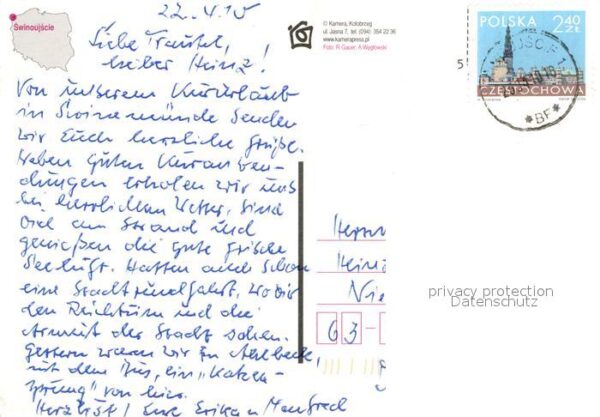 Świnoujście
22.4.10
Liebe Traudel,
lieber Heinz!
Von unserem Kurzurlaub
in Swinemünde senden
wir Euch herzliche Grüße.
Neben guten Kuranwen-
dungen erholen wir uns
bei herrlichem Wetter, sind
viel am Strand und
genießen die gute frische
Seeluft. Hatten auch schon
eine Stadtrundfahrt, wo wir
den Reichtum und die
Armut der Stadt sehen.
Gestern waren wir in Ahlbeck,
mit dem Bus, ein "Katzen-
sprung" von hier.
Herzlichst! Eure Erika u Manfred
© Kamera, Kołobrzeg
ul. Jasna 7, tel. (094) 354 22 36
www.kamerapress.pl
Foto: R Gauer, A Węglowski
5
POLSKA
2,40
ZŁ
CZĘSTOCHOWA
*BF*
Herrn
Heinz
Nie
63-
privacy protection
Datenschutz